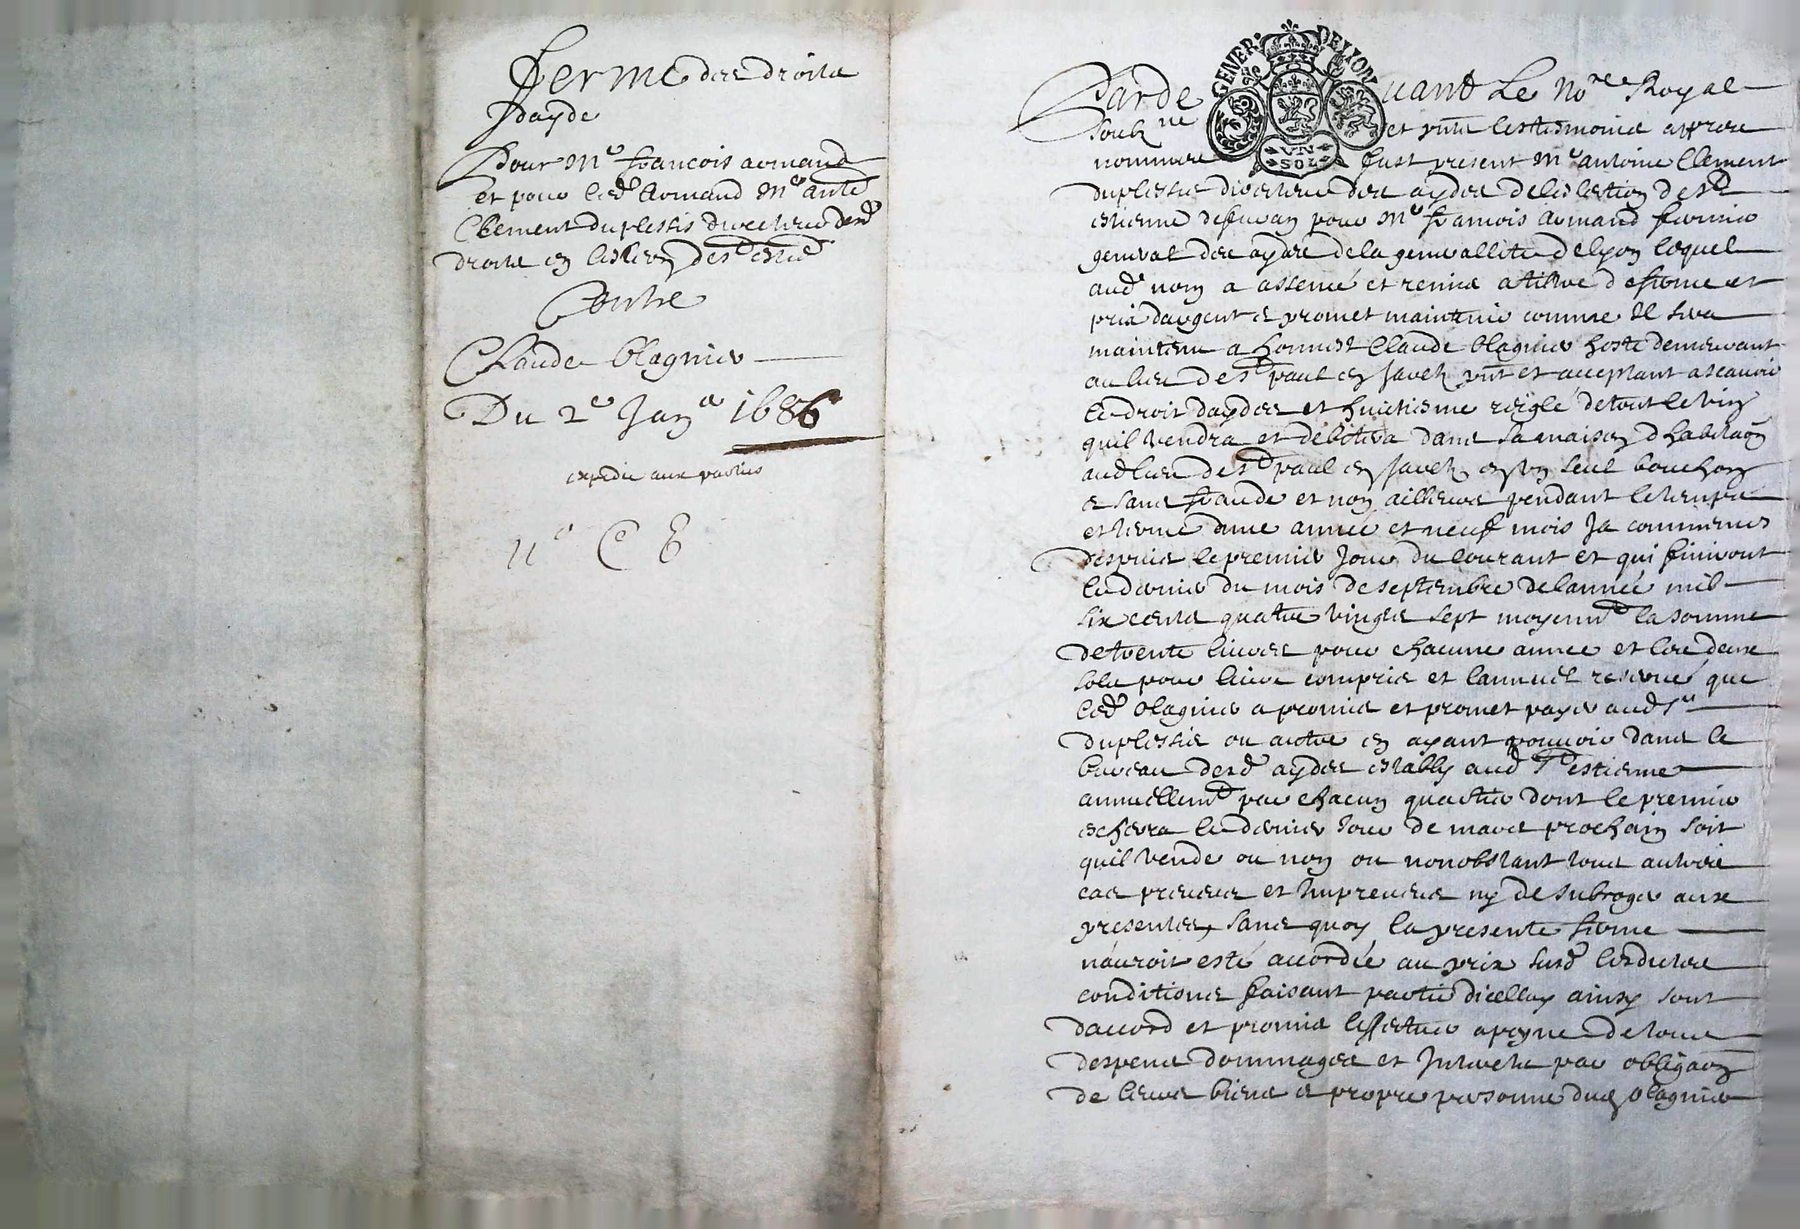 Ferme des droits
daydes
Pour Me francois armand
et pour led Armand Me anthe
Clement duplessis directeur desd
droits en leslon de st estiene
Contre
Claude Olagnier
Du 2e Jane 1686
expedie aux parties
11e C E
GENER DELYON
UN SOL
Parde uant Le Nore Royal
soubzne et pnts les tesmoins apres
nommes fust present Me antoine Clement
duplessis directeur des aydes de leslection de st
estienne de furan pour Me francois Armand fermier
general des aydes de la generallitte de lyon lequel
aud nom a assence et remis a tiltre de ferme et
prix dargent et promet maintenir comme il sera
maintenu a honnest Claude Olagnier hoste demeurant
au lieu de st paul en Jarez pnt et acceptant ascauoir
le droit daydes et huictiesme reigle de tout le vin
quil vendra et debitera dans sa maison dhabitaon
aud lieu de st paul en Jarez en un seul bouchon
et sans fraude et non ailheurs pendant le temps
et terme dune annee et neuf mois Ja commences
despuis le premier Jour du courant et qui finiront
le dernier du mois de septembre de lannee mil
six cents quatre vingts sept moyennt la somme
de trente liures pour chacune annee et les deux
sols pour liure compris et lannuel reserue que
led Olagnier a promis et promet payer aud sr
duplessis ou autre en ayant pouuoir dans le
bureau desd aydes estably aud st estienne
annuellemt par chacun quartier dont le premier
eschera le dernier Jour de mars prochain soit
quil vende ou non ou nonobstant tous autres
cas preueus et Impreueus ny de subroger aux
presentes, sans quoy la presente ferme
nauroit esté accordée au prix susd lesdittes
conditions faisant partie dicelles ainsy sont
daccord et promis leffectuer a peyne de tous
despens dommages et Interets par obligaon
de leurs biens et propre personne dud Olagnier